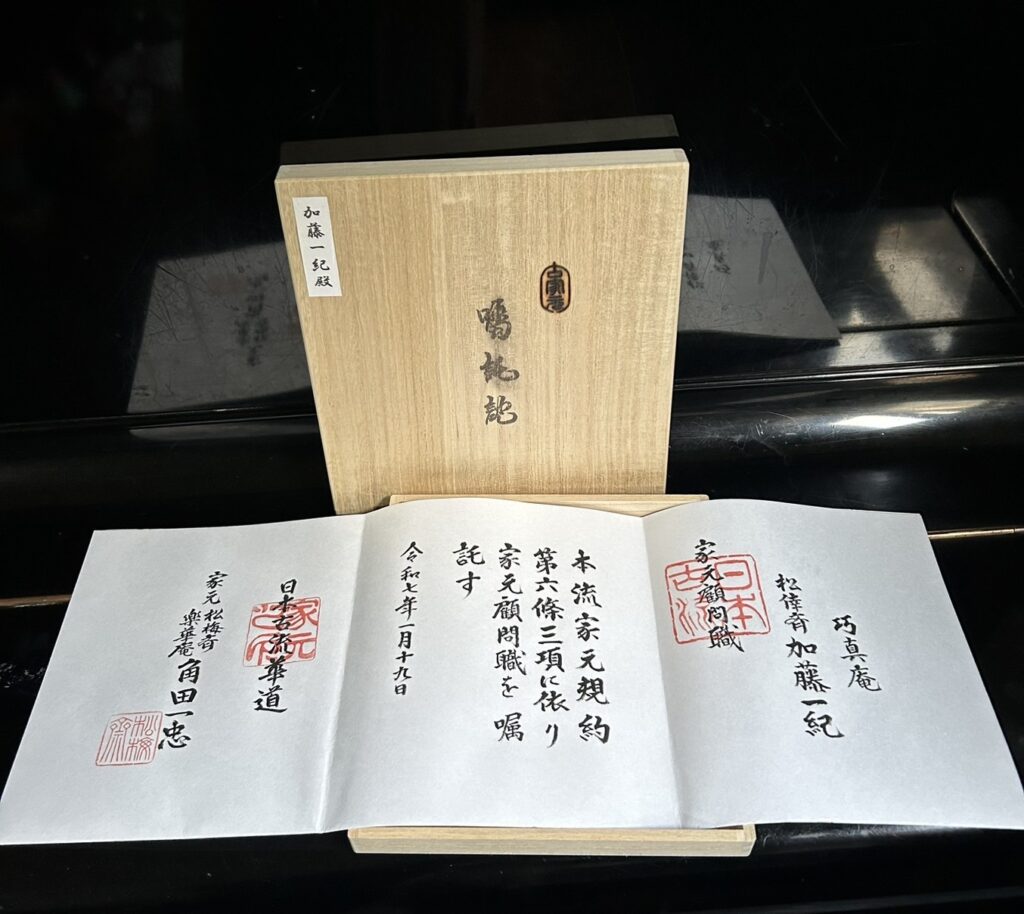 加藤一紀殿
嘱託
巧真庵
松偉斉 加藤一紀
家元顧問職
日本
古流
本流家元規約
第六條三項に依り
家元顧問職を嘱
託す
令和七年一月十九日
日本古流華道
家元
家元 松梅斉
楽華庵 角田一忠